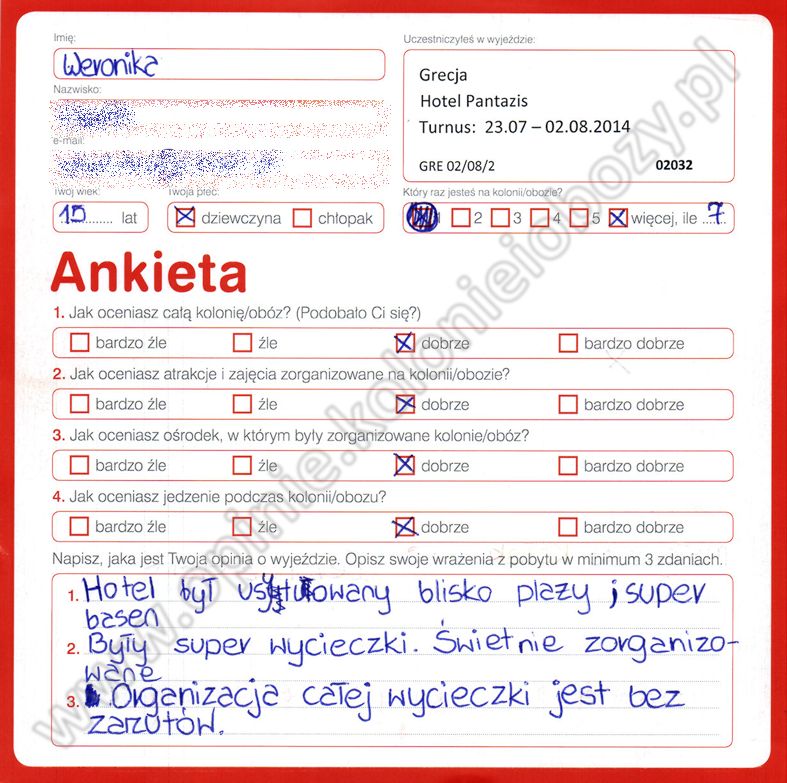 Imię:
Uczestniczyłeś w wyjeździe:
Weronika
Grecja
Hotel Pantazis
Turnus: 23.07 – 02.08.2014
GRE 02/08/2 02032
Nazwisko:
e-mail:
Twój wiek:
Twoja płeć:
Który raz jesteś na kolonii/obozie?
15 lat
dziewczyna chłopak
1 2 3 4 5 więcej, ile 7
Ankieta
1. Jak oceniasz całą kolonię/obóz? (Podobało Ci się?)
bardzo źle źle dobrze bardzo dobrze
2. Jak oceniasz atrakcje i zajęcia zorganizowane na kolonii/obozie?
bardzo źle źle dobrze bardzo dobrze
3. Jak oceniasz ośrodek, w którym były zorganizowane kolonie/obóz?
bardzo źle źle dobrze bardzo dobrze
4. Jak oceniasz jedzenie podczas kolonii/obozu?
bardzo źle źle dobrze bardzo dobrze
Napisz, jaka jest Twoja opinia o wyjeździe. Opisz swoje wrażenia z pobytu w minimum 3 zdaniach.
1. Hotel był blisko plaży i super
basen
2. Były super wycieczki. Świetnie zorganizo-
wane
3. Organizacja całej wycieczki jest bez
zarzutów.
www.opinie.kolonieiobozy.pl